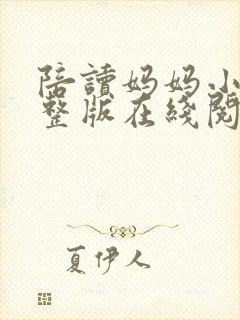 陪讀妈妈小
整版在綫閱
夏伊人